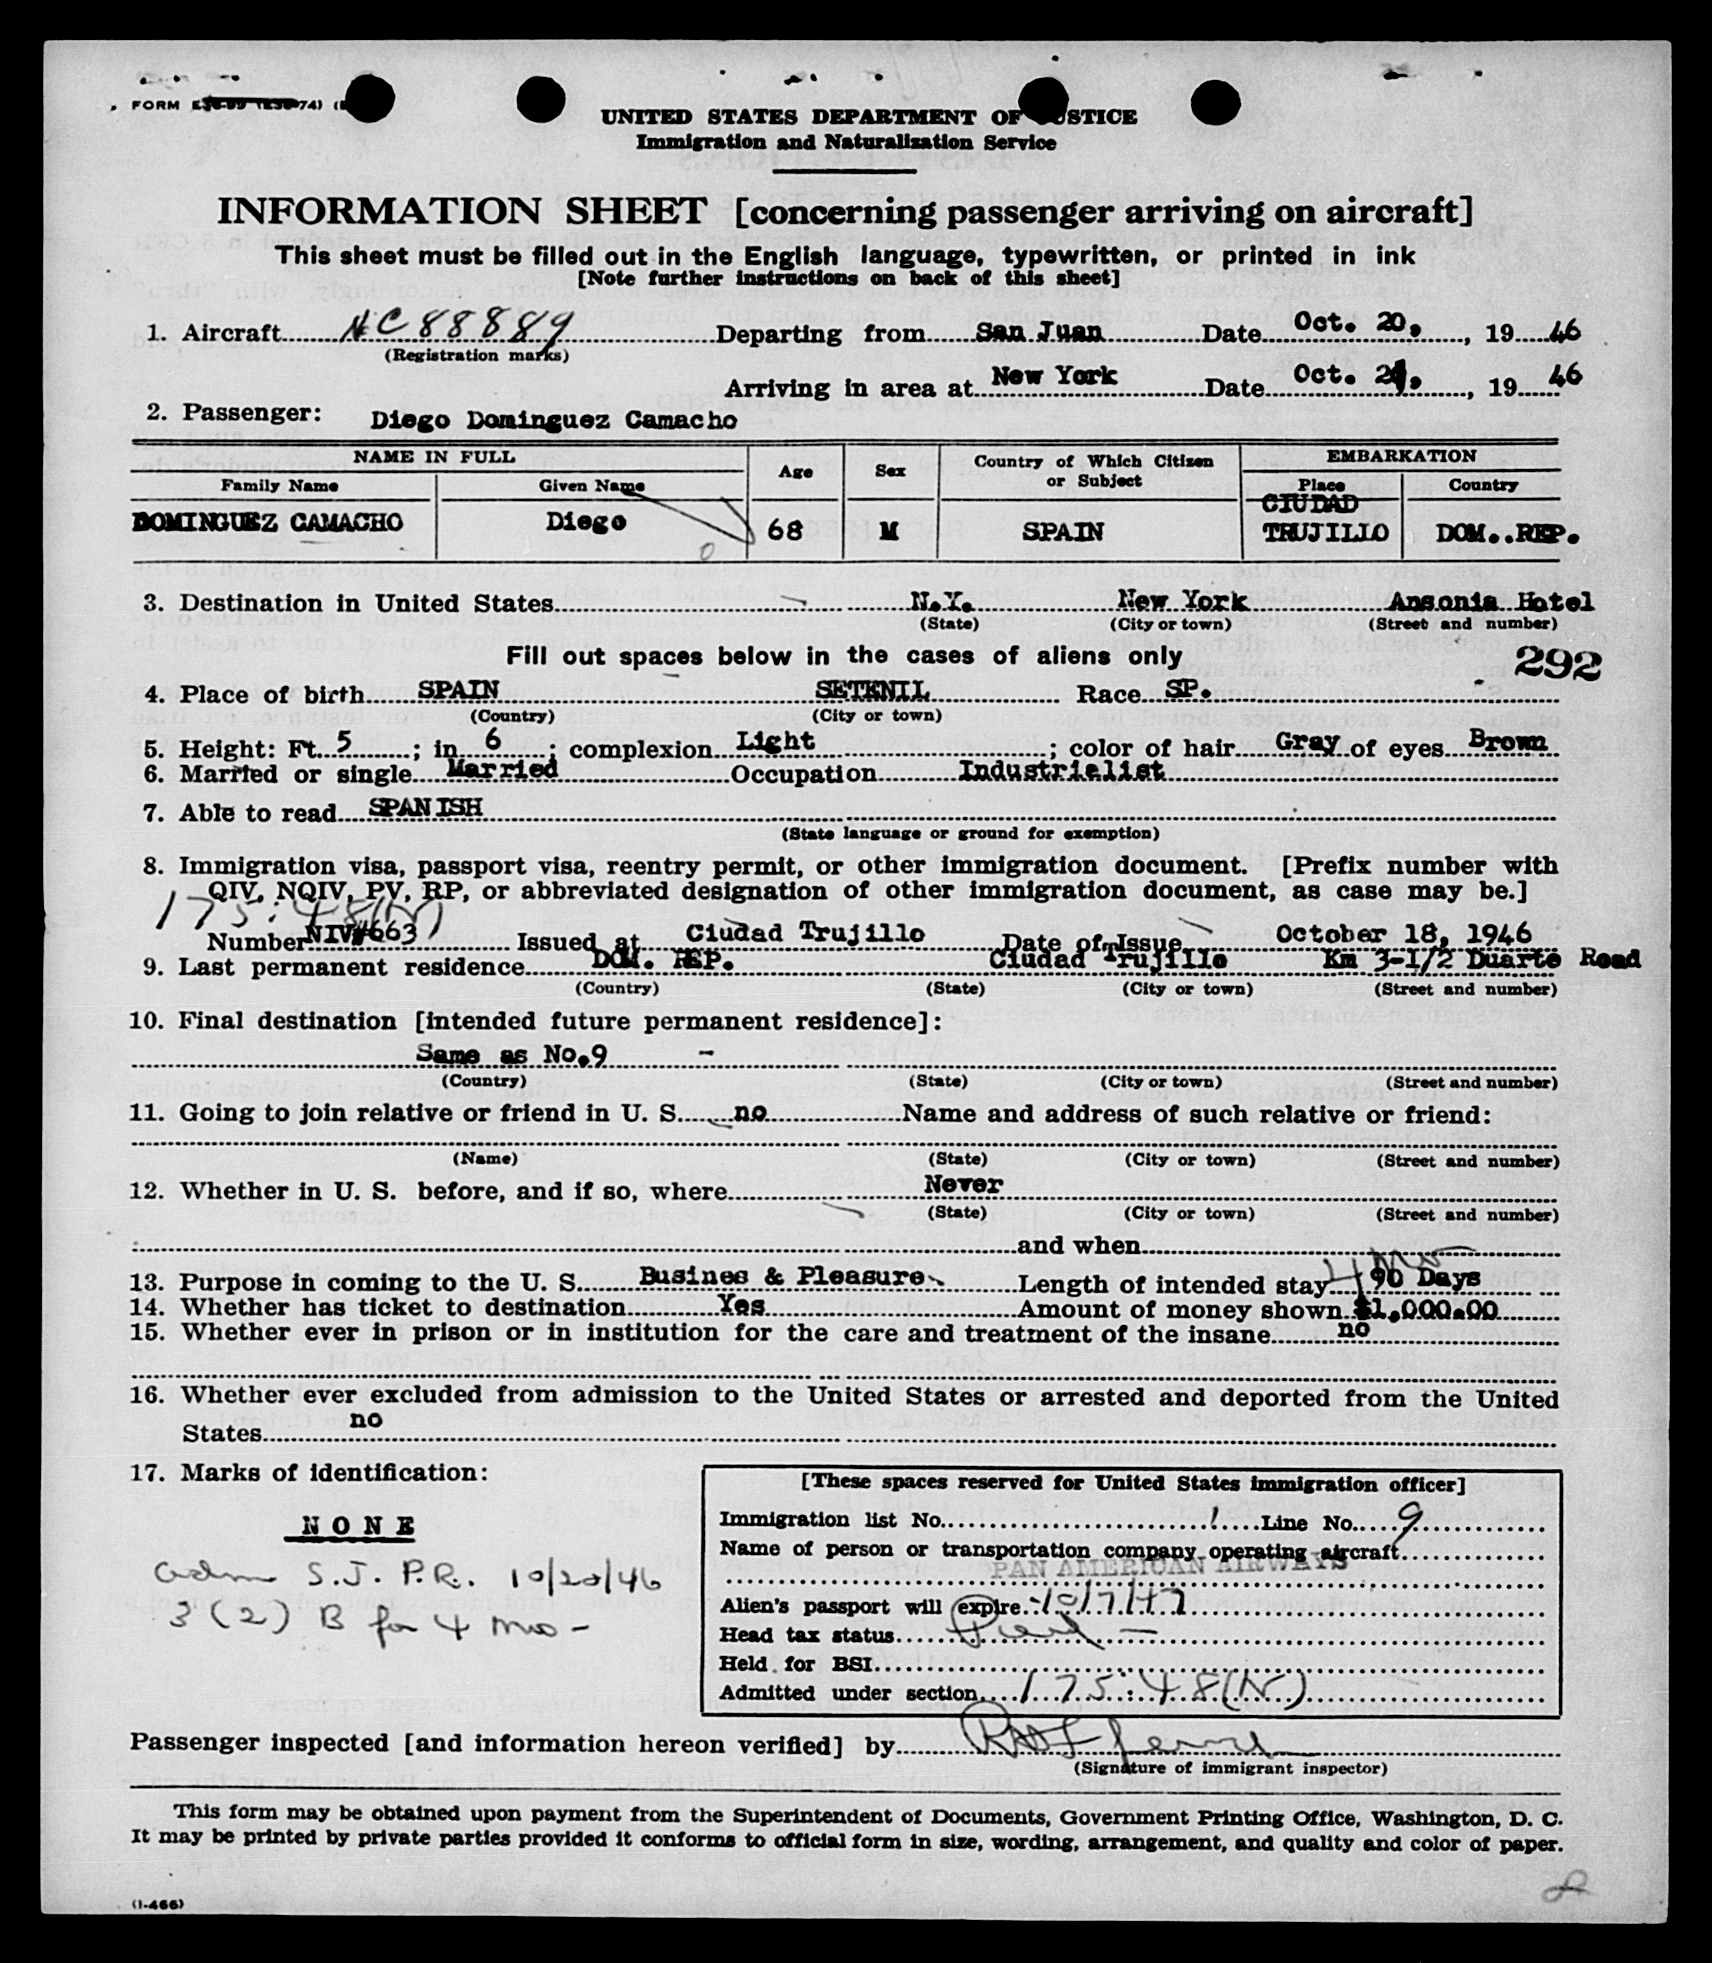 FORM
UNITED STATES DEPARTMENT OF JUSTICE
Immigration and Naturalization Service
INFORMATION SHEET [concerning passenger arriving on aircraft]
This sheet must be filled out in the English language, typewritten, or printed in ink
[Note further instructions on back of this sheet]
1. Aircraft NC88889 Departing from San Juan Date Oct. 20, 1946
(Registration marks)
Arriving in area at New York Date Oct. 21, 1946
2. Passenger: Diego Dominguez Camacho
NAME IN FULL Age Sex Country of Which Citizen or Subject EMBARKATION
Family Name Given Name Place Country
DOMINGUEZ CAMACHO Diego 68 M SPAIN CIUDAD TRUJILLO DOM..REP.
3. Destination in United States N.Y. New York Ansonia Hotel
(State) (City or town) (Street and number)
Fill out spaces below in the cases of aliens only 292
4. Place of birth SPAIN SETENIL Race SP.
(Country) (City or town)
5. Height: Ft. 5; in. 6; complexion Light; color of hair Gray of eyes Brown
6. Married or single Married Occupation Industrialist
7. Able to read SPANISH
(State language or ground for exemption)
8. Immigration visa, passport visa, reentry permit, or other immigration document. [Prefix number with
QIV, NQIV, PV, RP, or abbreviated designation of other immigration document, as case may be.]
175:48(N)
Number NIV#663 Issued at Ciudad Trujillo Date of Issue October 18, 1946
9. Last permanent residence DOM. REP. Ciudad Trujillo Km 3-1/2 Duarte Road
(Country) (State) (City or town) (Street and number)
10. Final destination [intended future permanent residence]:
Same as No.9 -
(Country) (State) (City or town) (Street and number)
11. Going to join relative or friend in U. S. no Name and address of such relative or friend:
(Name) (State) (City or town) (Street and number)
12. Whether in U. S. before, and if so, where Never
(State) (City or town) (Street and number)
and when
4 Mos
13. Purpose in coming to the U. S. Busines & Pleasure Length of intended stay 90 Days
14. Whether has ticket to destination Yes Amount of money shown $1,000.00
15. Whether ever in prison or in institution for the care and treatment of the insane no
16. Whether ever excluded from admission to the United States or arrested and deported from the United
States no
17. Marks of identification:
NONE
adm S.J. P.R. 10/20/46
3 (2) B for 4 mos -
[These spaces reserved for United States immigration officer]
Immigration list No. 1 Line No. 9
Name of person or transportation company operating aircraft
PAN AMERICAN AIRWAYS
Alien's passport will expire 10/7/47
Head tax status
Held for BSI
Admitted under section 175:48(N)
Passenger inspected [and information hereon verified] by
(Signature of immigrant inspector)
This form may be obtained upon payment from the Superintendent of Documents, Government Printing Office, Washington, D. C.
It may be printed by private parties provided it conforms to official form in size, wording, arrangement, and quality and color of paper.
(I-466)